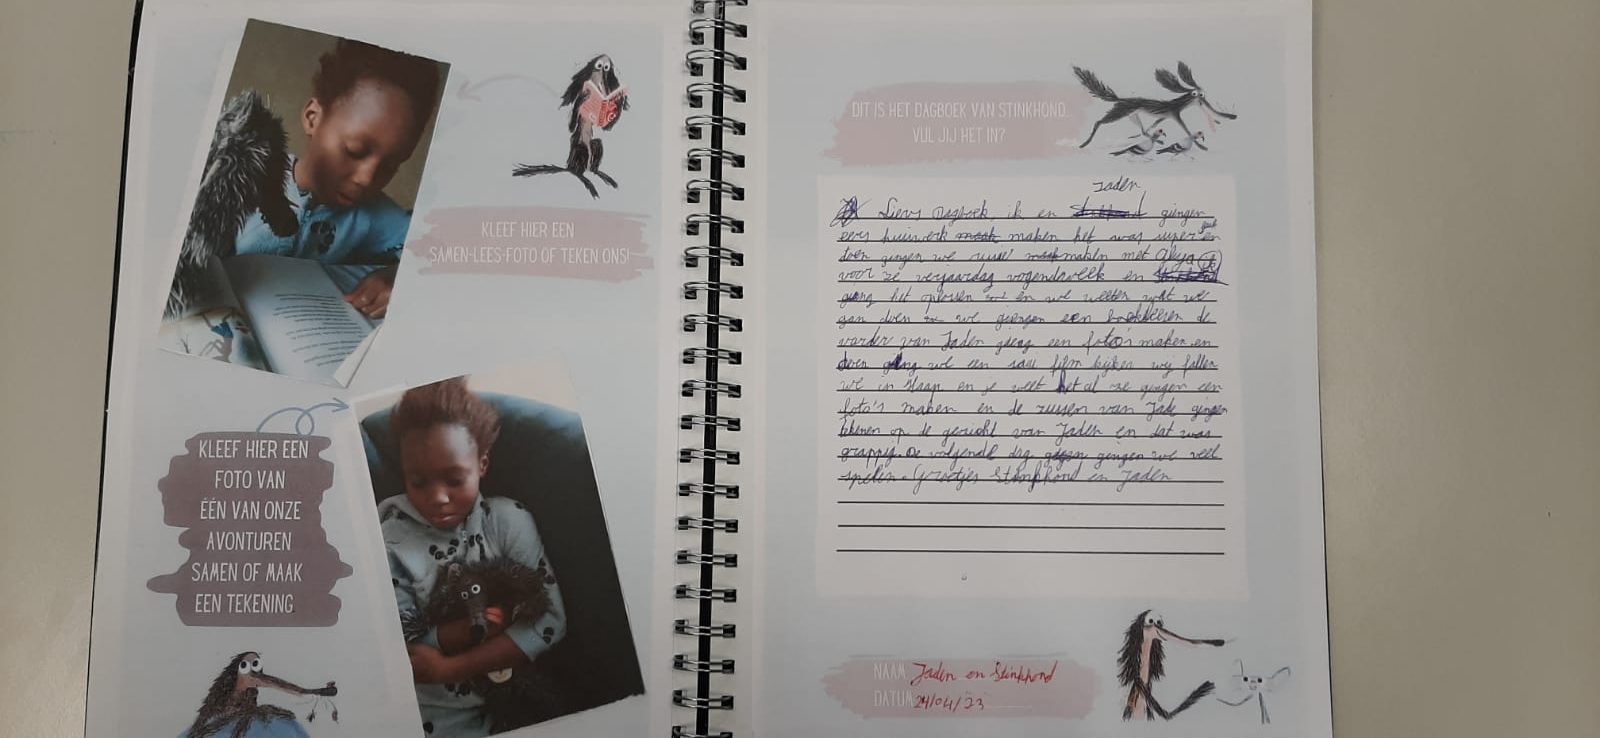 KLEEF HIER EEN
SAMEN-LEES-FOTO OF TEKEN ONS!
KLEEF HIER EEN
FOTO VAN
ÉÉN VAN ONZE
AVONTUREN
SAMEN OF MAAK
EEN TEKENING.
DIT IS HET DAGBOEK VAN STINKHOND...
VUL JIJ HET IN?
Jaden
Dagboek, ik en giengen
huiswerk maken het was super
toen gingen we maken met
voor ze verjaardag en
het oplossen en we weten wat we
gan doen we giengen een de
van Jaden gieng een foto's maken en
we een saai film kijken wij fallen
we in slaap en je weet het al ze gingen een
foto's maken en de van gingen
op de gezicht van Jaden en dat was
grappig. De volgende dag gengen we veel
spelen. Groetjes Stinkhond en Jaden
NAAM Jaden en Stinkhond
DATUM 24/04/23